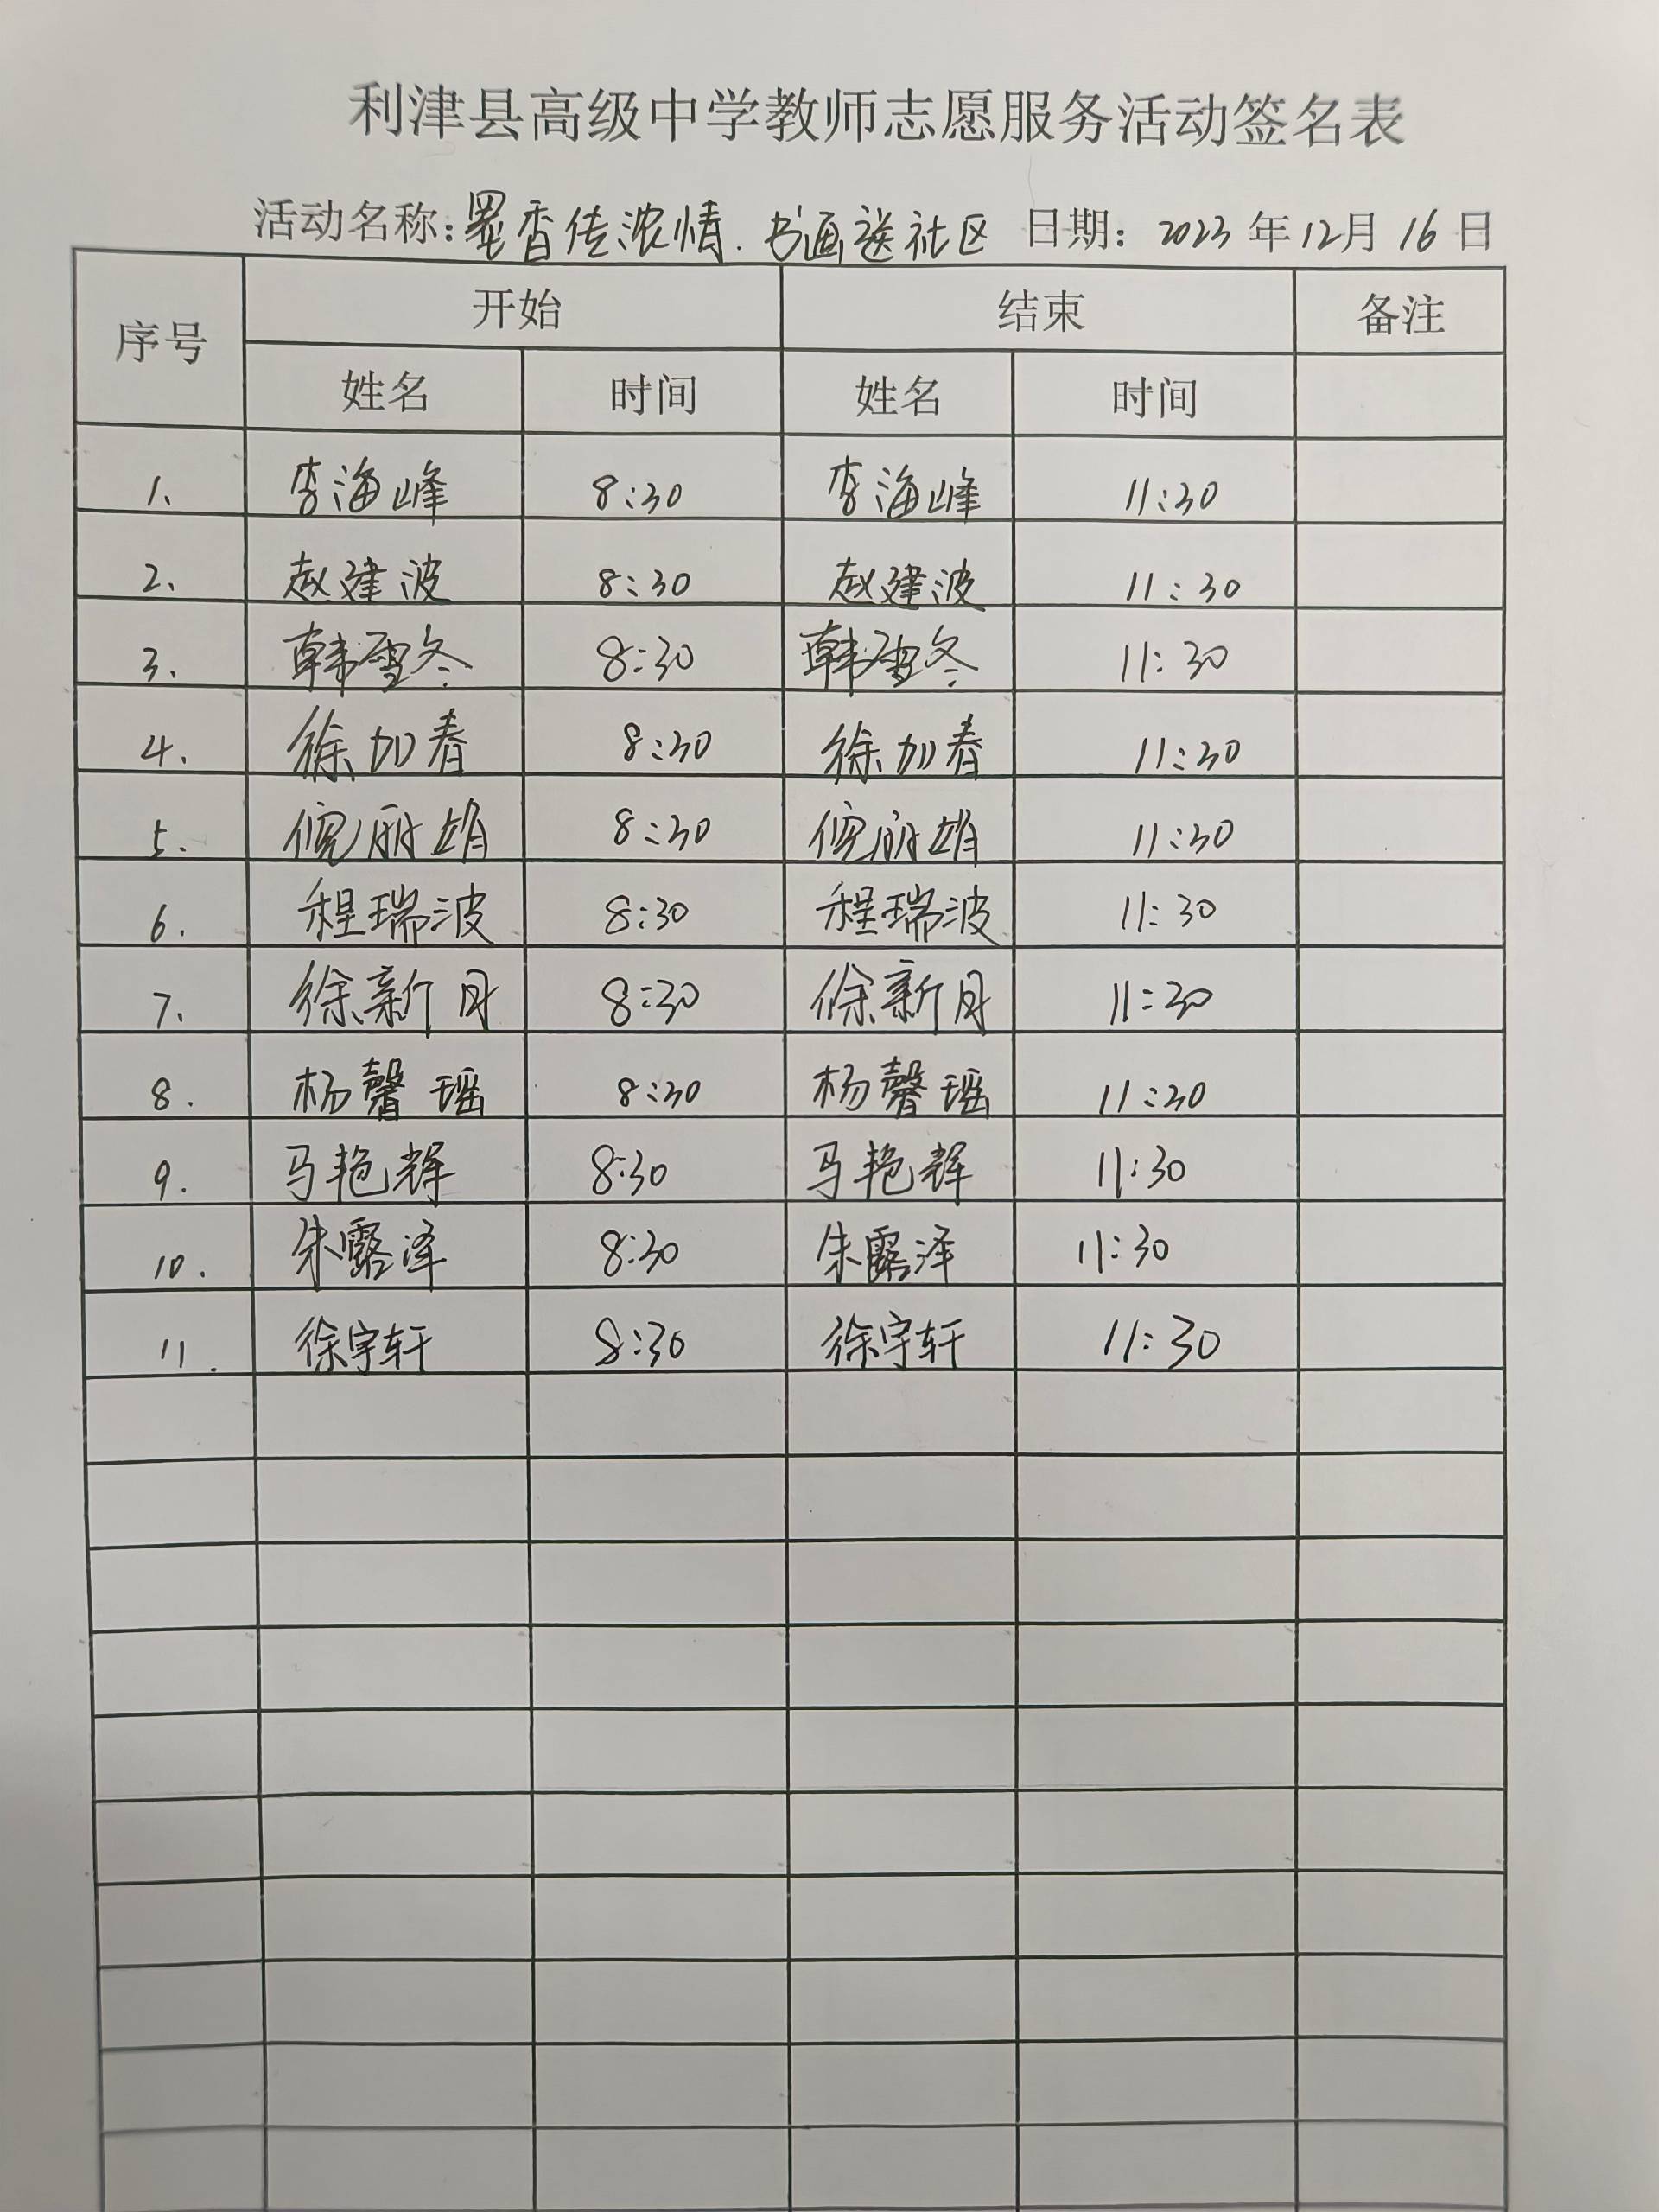 利津县高级中学教师志愿服务活动签名表
活动名称：墨香传浓情．书画送社区 日期：2023年12月16日
序号 开始 结束 备注
姓名 时间 姓名 时间
1、 李海峰 8:30 李海峰 11:30
2、 赵建波 8:30 赵建波 11:30
3、 韩雪冬 8:30 韩雪冬 11:30
4. 徐加春 8:30 徐加春 11:30
5. 倪丽娟 8:30 倪丽娟 11:30
6. 程瑞波 8:30 程瑞波 11:30
7. 徐新月 8:30 徐新月 11:30
8. 杨馨瑶 8:30 杨馨瑶 11:30
9. 马艳辉 8:30 马艳辉 11:30
10. 朱露泽 8:30 朱露泽 11:30
11. 徐宇轩 8:30 徐宇轩 11:30